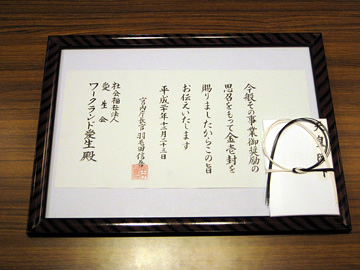 今般その事業御奨励の
思召をもって金壱封を
賜りましたからこの旨
お伝えいたします
平成二十年十二月二十三日
宮内庁長官 羽毛田信吾
社会福祉法人
愛生会
ワークランド愛生 殿